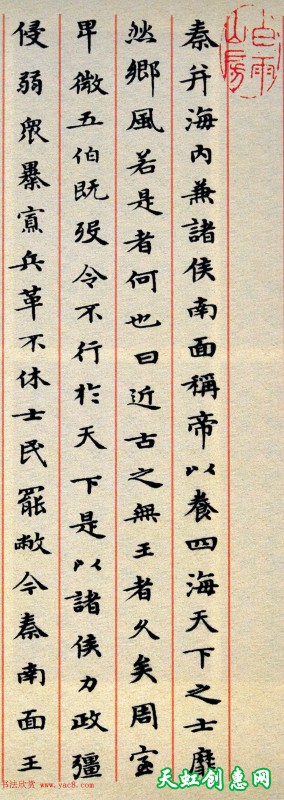 秦并海内兼諸侯南面稱帝以養四海天下之士靡
然鄉風若是者何也曰近古之無王者久矣周室
卑微五伯既歿令不行於天下是以諸侯力政彊
侵弱衆暴寡兵革不休士民罷敝今秦南面王
山房
书法欣赏 www.yac8.com
天虹创惠网